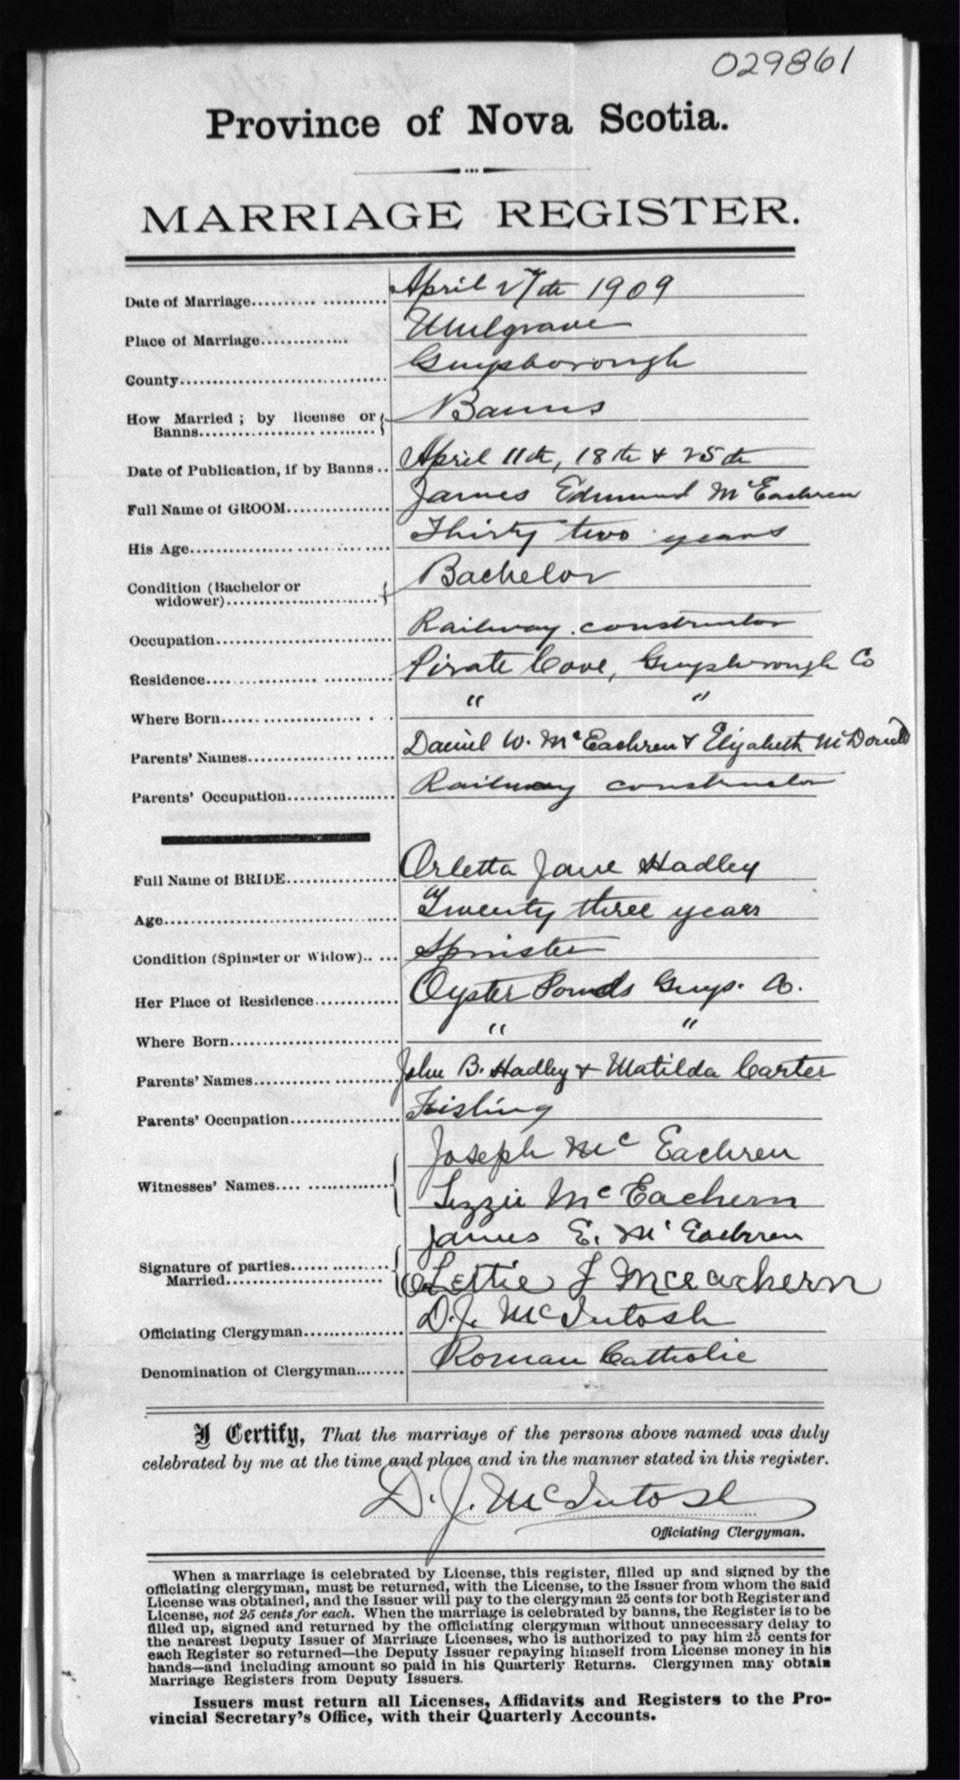 029861
Province of Nova Scotia.
MARRIAGE REGISTER.
Date of Marriage.................... April 27th 1909
Place of Marriage............. Mulgrave
County............................... Guysborough
How Married; by license or
Banns............................. Banns
Date of Publication, if by Banns.. April 11th, 18th & 25th
Full Name of GROOM............... James Edmund McEachren
His Age.............................. Thirty two years
Condition (Bachelor or
widower)....................... Bachelor
Occupation.......................... Railway constructor
Residence........................... Pirate Cove, Guysborough Co
Where Born........................ " "
Parents' Names.................... Daniel W. McEachren & Elizabeth McDonald
Parents' Occupation............... Railway constructor
Full Name of BRIDE................ Orletta Jane Hadley
Age.................................. Twenty three years
Condition (Spinster or Widow)..... Spinster
Her Place of Residence............ Oyster Ponds Guys. Co.
Where Born......................... " "
Parents' Names.................... John B. Hadley & Matilda Carter
Parents' Occupation............... Fishing
Joseph McEachren
Witnesses' Names.................
Lizzie McEachern
James E. McEachren
Signature of parties..............
Married........................ Lettie J Mceachern
Officiating Clergyman............. D.J. McIntosh
Denomination of Clergyman....... Roman Catholic
I Certify, That the marriage of the persons above named was duly
celebrated by me at the time and place and in the manner stated in this register.
D. J. McIntosh
Officiating Clergyman.
When a marriage is celebrated by License, this register, filled up and signed by the
officiating clergyman, must be returned, with the License, to the Issuer from whom the said
License was obtained, and the Issuer will pay to the clergyman 25 cents for both Register and
License, not 25 cents for each. When the marriage is celebrated by banns, the Register is to be
filled up, signed and returned by the officiating clergyman without unnecessary delay to
the nearest Deputy Issuer of Marriage Licenses, who is authorized to pay him 25 cents for
each Register so returned—the Deputy Issuer repaying himself from License money in his
hands—and including amount so paid in his Quarterly Returns. Clergymen may obtain
Marriage Registers from Deputy Issuers.
Issuers must return all Licenses, Affidavits and Registers to the Pro-
vincial Secretary's Office, with their Quarterly Accounts.